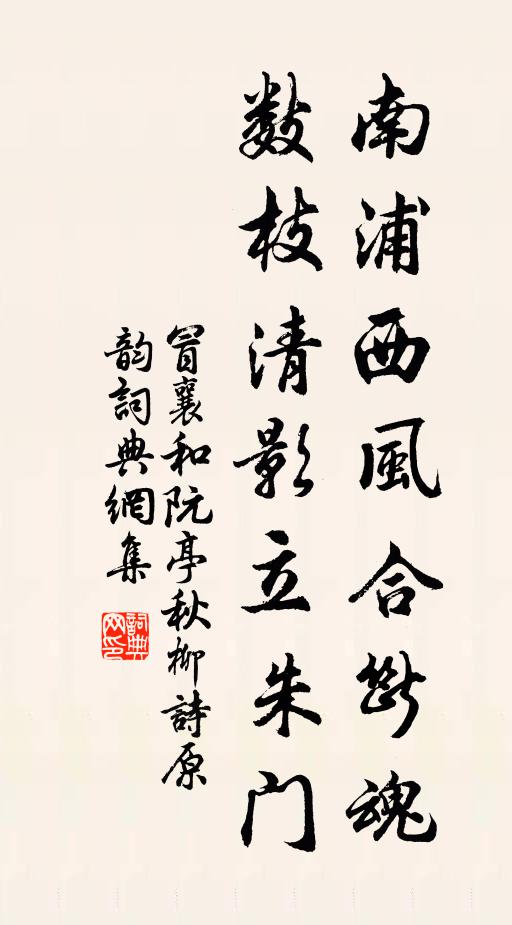 南浦西風合斷魂
數枝清影立朱门
冒襄和阮亭秋柳詩原
韵詞典網集
詞典网印